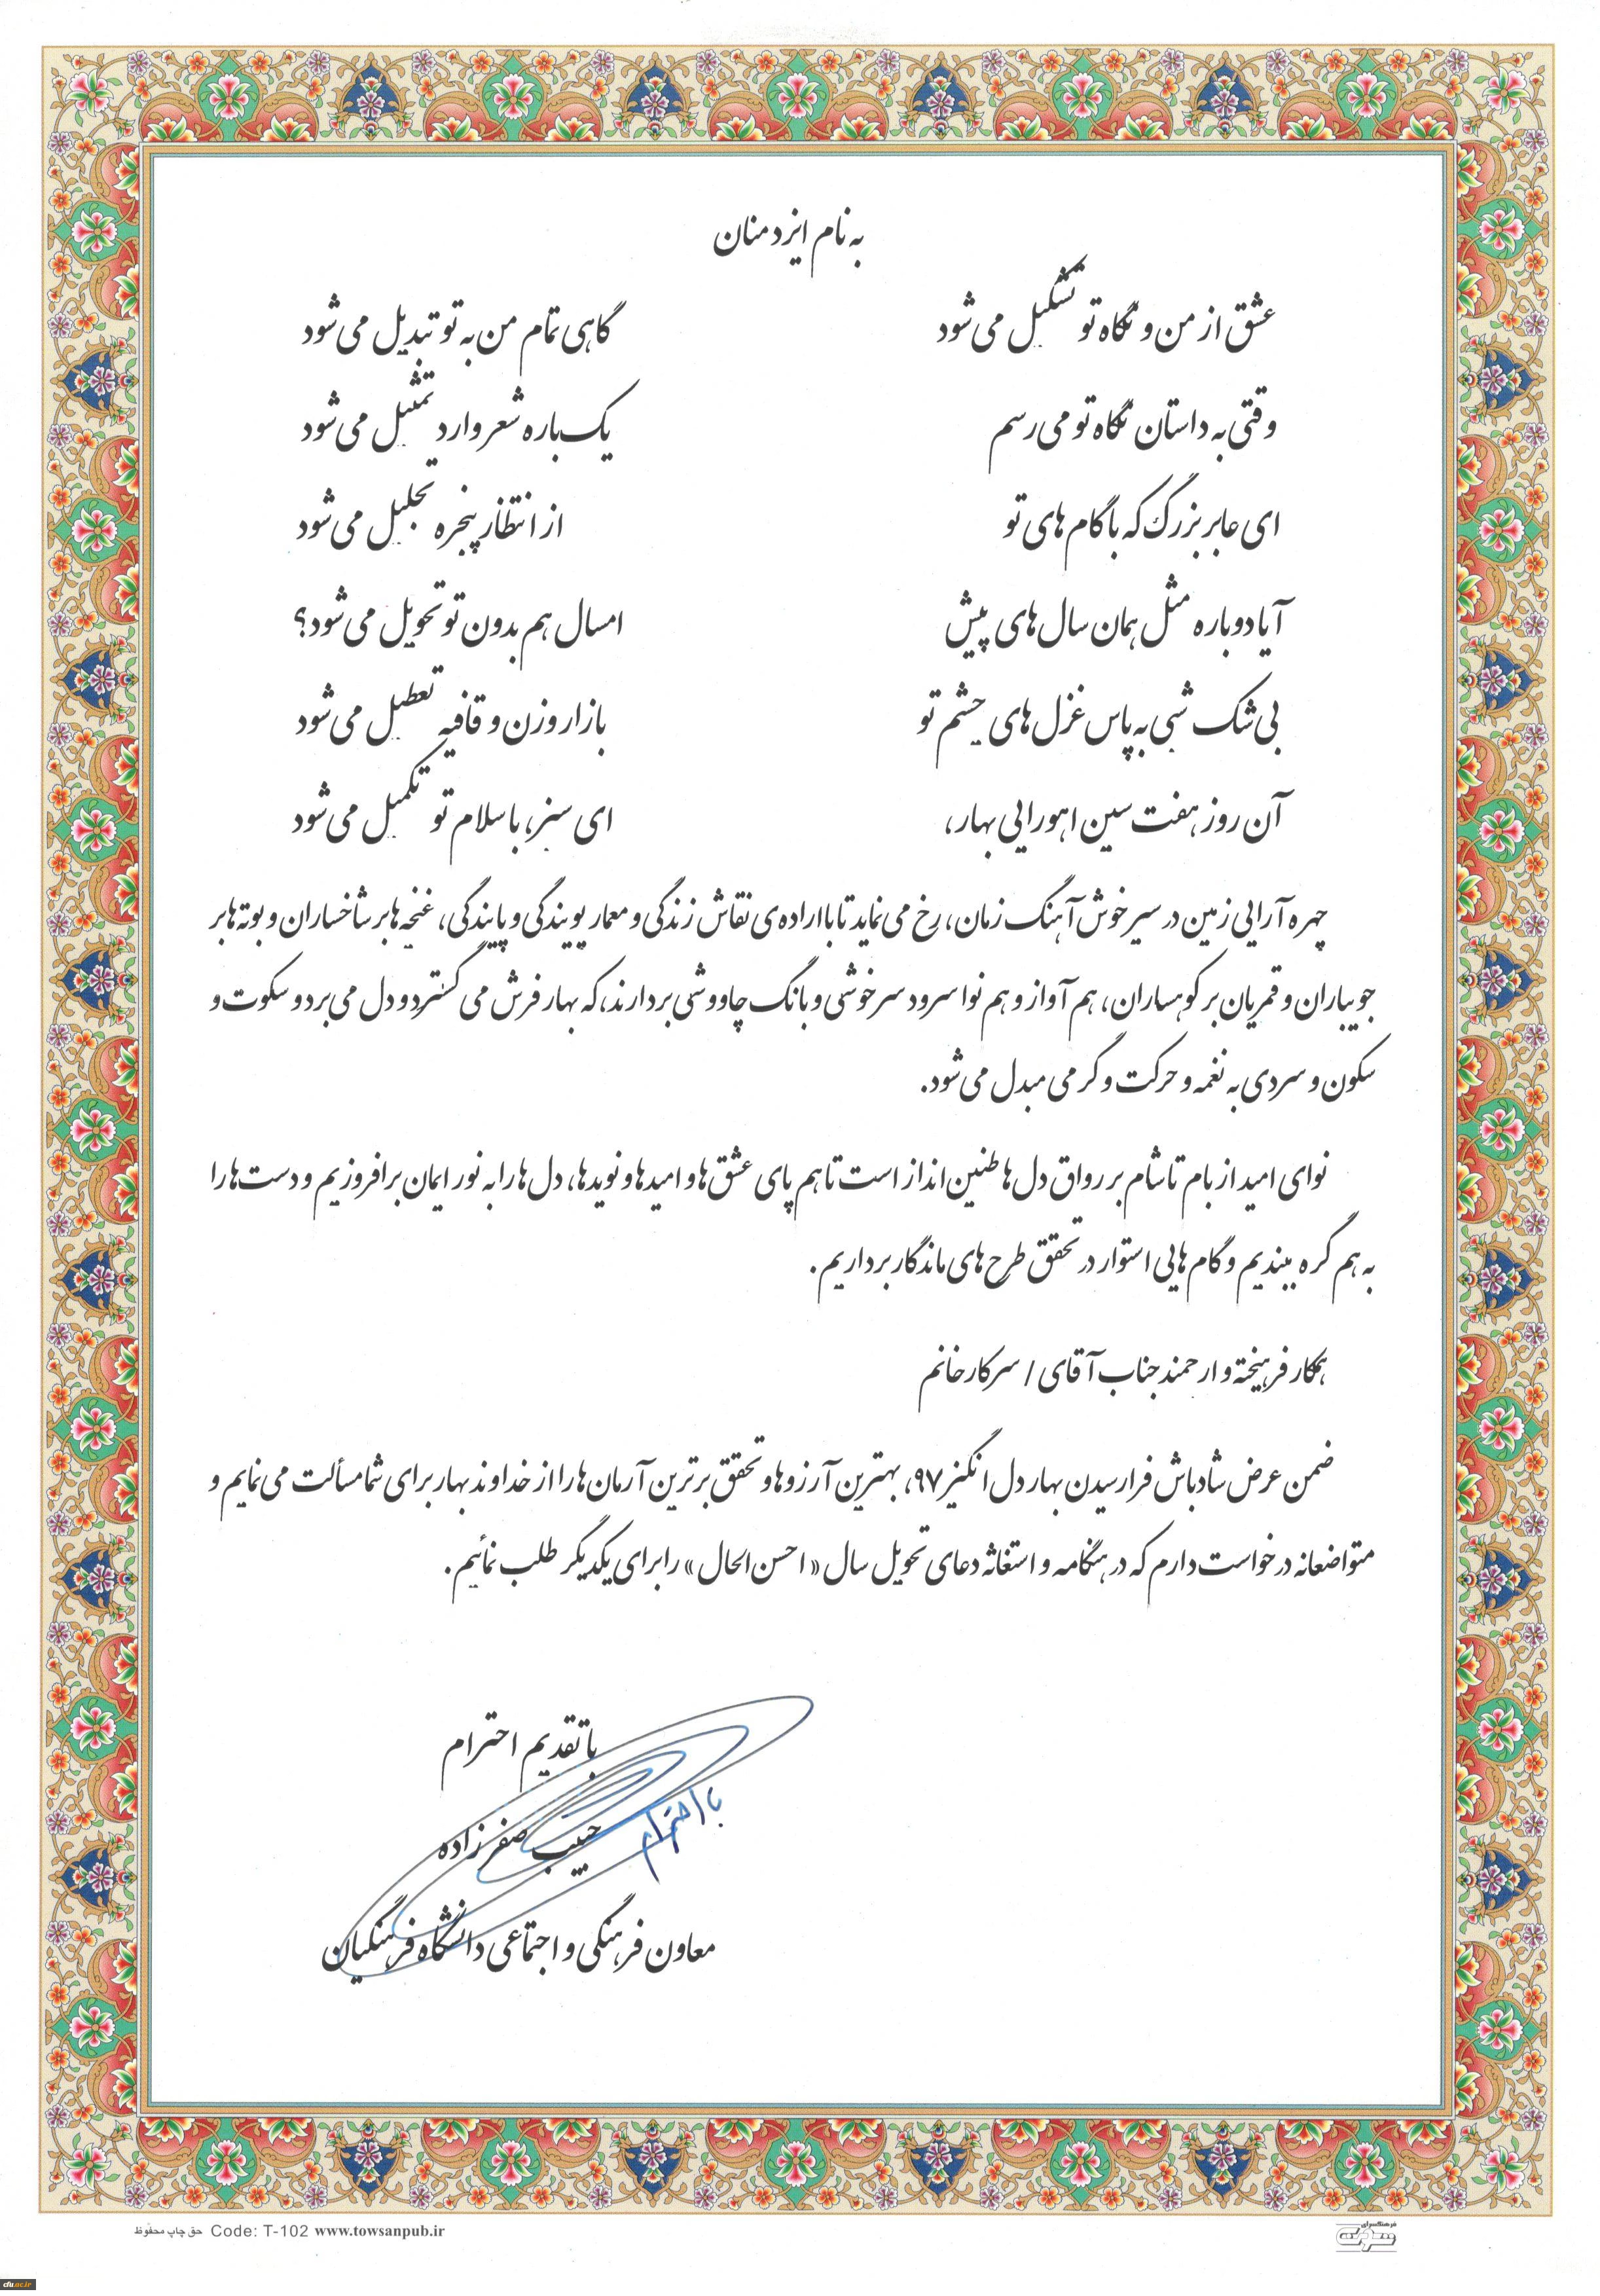 به نام ایزد منان
عشق از من و نگاه تو تشکیل می‌شود گاهی تمام من به تو تبدیل می‌شود
وقتی به داستان نگاه تو می‌رسم یک باره شعر وارد تمثیل می‌شود
ای عابر بزرگ که با گام های تو از انتظار پنجره تجلیل می‌شود
آیا دوباره مثل همان سال های پیش امسال هم بدون تو تحویل می‌شود؟
بی شک شبی به پاس غزل های چشم تو بازار وزن و قافیه تعطیل می‌شود
آن روز هفت سین اهورایی بهار، ای سبز، با سلام تو تکمیل می‌شود
چهره آرایی زمین در سیر خوش آهنگ زمان، رخ می نماید تا با اراده‌ی نقاش زندگی و معمار پویندگی و پایندگی، غنچه ها بر شاخساران و بوته ها بر
جویباران و قمریان بر کوهساران، هم آواز و هم نوا سرود سرخوشی و بانگ چاووشی بردارند، که بهار فرش می گسترد و دل می برد و سکوت و
سکون و سردی به نغمه و حرکت و گرمی مبدل می‌شود.
نوای امید از بام تا شام بر رواق دل ها طنین انداز است تا هم پای عشق ها و امیدها و نویدها، دل ها را به نور ایمان برافروزیم و دست ها را
به هم گره ببندیم و گام هایی استوار در تحقق طرح های ماندگار برداریم.
همکار فرهیخته و ارجمند جناب آقای / سرکار خانم
ضمن عرض شادباش فرارسیدن بهار دل انگیز ۹۷، بهترین آرزوها و تحقق برترین آرمان ها را از خداوند بهار برای شما مسألت می نمایم و
متواضعانه درخواست دارم که در هنگامه و استغاثه دعای تحویل سال «احسن الحال» را برای یکدیگر طلب نمائیم.
با تقدیم احترام
با احترام
حبیب صفرزاده
معاون فرهنگی و اجتماعی دانشگاه فرهنگیان
حق چاپ محفوظ Code: T-102 www.towsanpub.ir
فرهنگسرای
cfu.ac.ir